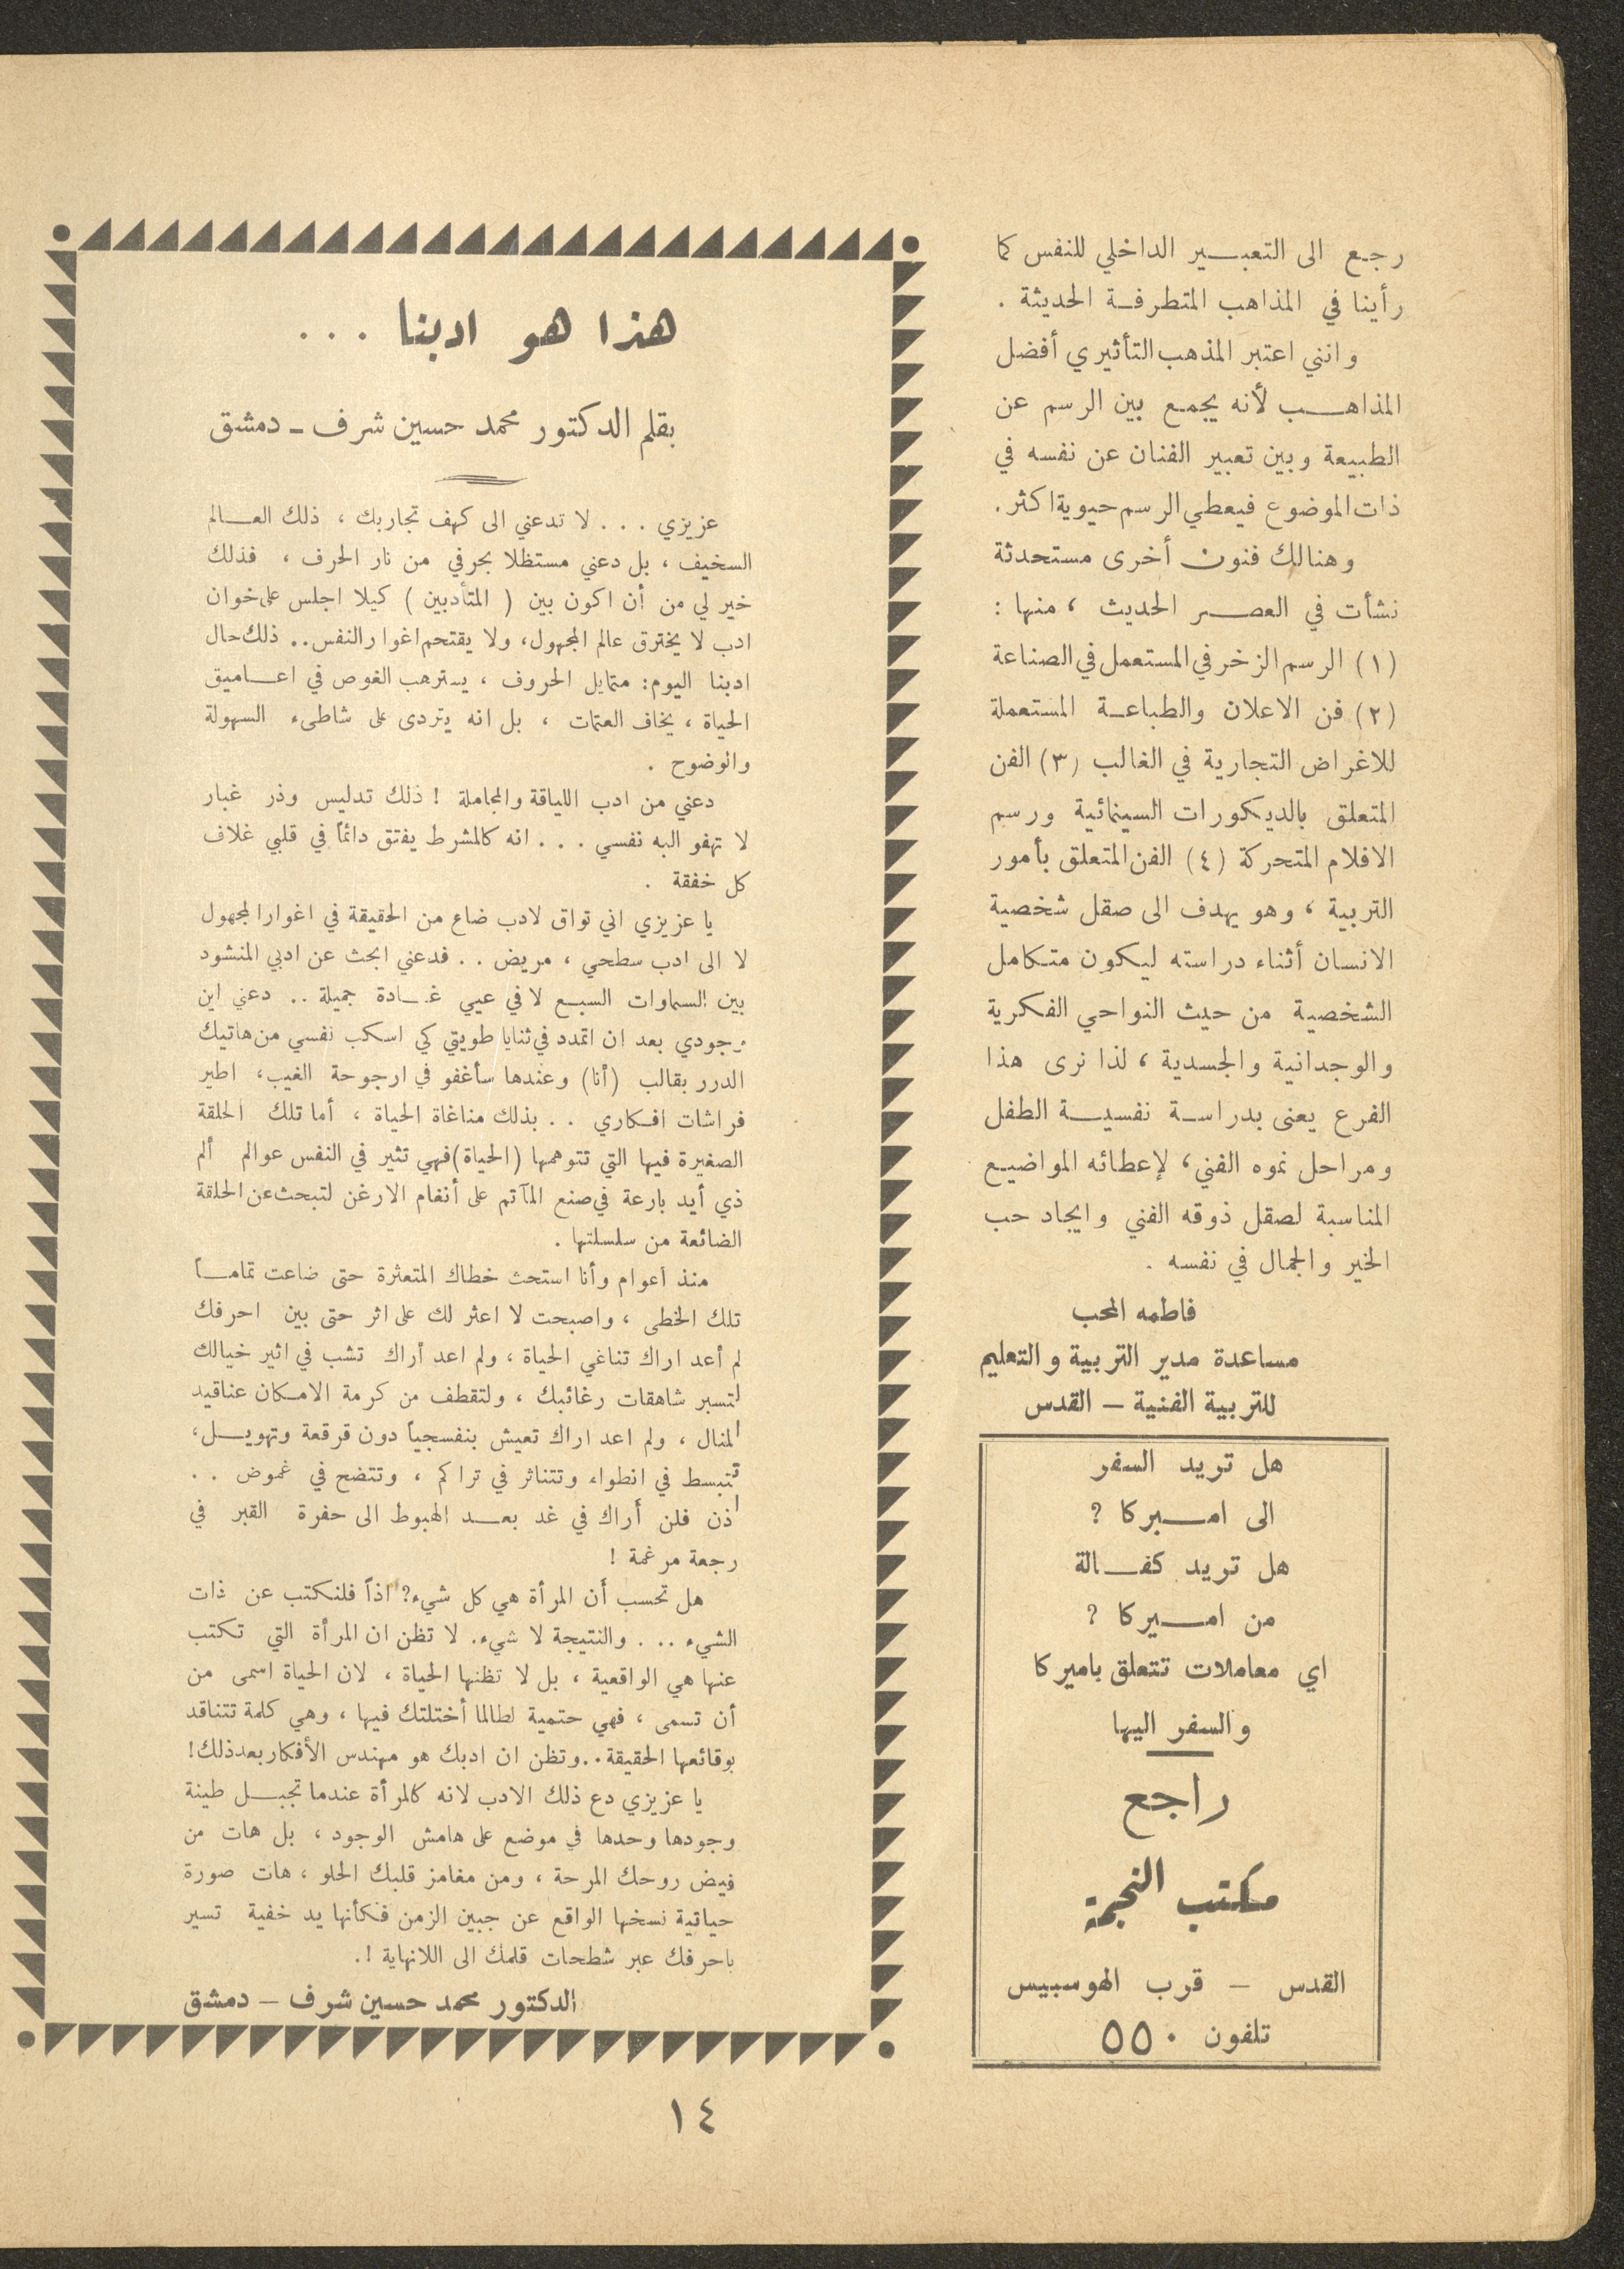 رجع الى التعبير الداخلي للنفس كما
رأينا في المذاهب المتطرفة الحديثة .
وانني اعتبر المذهب التأثيري أفضل
المذاهب لأنه يجمع بين الرسم عن
الطبيعة وبين تعبير الفنان عن نفسه في
ذات الموضوع فيعطي الرسم حيوية اكثر .
وهنالك فنون أخرى مستحدثة
نشأت في العصر الحديث ، منها :
(١) الرسم الزخرفي المستعمل في الصناعة
(٢) فن الاعلان والطباعة المستعملة
للاغراض التجارية في الغالب (٣) الفن
المتعلق بالديكورات السينمائية ورسم
الافلام المتحركة (٤) الفن المتعلق بأمور
التربية ، وهو يهدف الى صقل شخصية
الانسان أثناء دراسته ليكون متكامل
الشخصية من حيث النواحي الفكرية
والوجدانية والجسدية ، لذا نرى هذا
الفرع يعنى بدراسة نفسية الطفل
ومراحل نموه الفني ، لإعطائه المواضيع
المناسبة لصقل ذوقه الفني وايجاد حب
الخير والجمال في نفسه .
فاطمه المحب
مساعدة مدير التربية والتعليم
للتربية الفنية – القدس
هل تريد السفر
الى اميركا ؟
هل تريد كفالة
من اميركا ؟
اي معاملات تتعلق باميركا
والسفر اليها
راجع
مكتب النجمة
القدس – قرب الهوسبيس
تلفون ٥٥٠
هذا هو ادبنا . . .
بقلم الدكتور محمد حسين شرف – دمشق
عزيزي . . . لا تدعني الى كهف تجاربك ، ذلك العالم
السخيف ، بل دعني مستظلا بحرفي من نار الحرف ، فذلك
خير لي من أن اكون بين ( المتأدبين ) كيلا اجلس على خوان
ادب لا يخترق عالم المجهول ، ولا يقتحم اغوار النفس .. ذلك حال
ادبنا اليوم : متمايل الحروف ، يسترهب الغوص في اعاميق
الحياة ، يخاف العتمات ، بل انه يتردى على شاطىء السهولة
والوضوح .
دعني من ادب اللياقة والمجاملة ! ذلك تدليس وذر غبار
لا تهفو اليه نفسي . . . انه كالمشرط يفتق دائماً في قلبي غلاف
كل خفقة .
يا عزيزي اني تواق لادب ضاع من الحقيقة في اغوار المجهول
لا الى ادب سطحي ، مريض . . فدعني ابحث عن ادبي المنشود
بين السماوات السبع لا في عيي غادة جميلة .. دعني اين
وجودي بعد ان اتمدد في ثنايا طويتي كي اسكب نفسي من هاتيك
الدرر بقالب (أنا) وعندها سأغفو في ارجوحة الغيب ، اطير
فراشات افكاري . . بذلك مناغاة الحياة ، أما تلك الحلقة
الصغيرة فيها التي تتوهمها (الحياة) فهي تثير في النفس عوالم ألم
ذي أيد بارعة في صنع المآتم على أنغام الارغن لتبحث عن الحلقة
الضائعة من سلسلتها .
منذ اعوام وأنا استحث خطاك المتعثرة حتى ضاعت تماماً
تلك الخطى ، واصبحت لا اعثر لك على اثر حتى بين احرفك
لم أعد اراك تناغي الحياة ، ولم اعد أراك تشب في اثير خيالك
لتسبر شاهقات رغائبك ، ولتقطف من كرمة الامكان عناقيد
المنال ، ولم اعد اراك تعيش بنفسجياً دون قرقعة وتهويل ،
تتبسط في انطواء وتتناثر في تراكم ، وتتضح في غموض . .
اذن فلن أراك في غد بعد الهبوط الى حفرة القبر في
رجعة مرغمة !
هل تحسب أن المرأة هي كل شيء ؟ اذاً فلنكتب عن ذات
الشيء . . . والنتيجة لا شيء . لا تظن ان المرأة التي تكتب
عنها هي الواقعية ، بل لا تظنها الحياة ، لان الحياة اسمى من
أن تسمى ، فهي حتمية لطالما أختلتك فيها ، وهي كلمة تتناقد
بوقائعها الحقيقة .. وتظن ان ادبك هو مهندس الأفكار بعد ذلك !
يا عزيزي دع ذلك الادب لانه كالمرأة عندما تجبل طينة
وجودها وحدها في موضع على هامش الوجود ، بل هات من
فيض روحك المرحة ، ومن مغامز قلبك الحلو ، هات صورة
حياتية نسخها الواقع عن جبين الزمن فكأنها يد خفية تسير
باحرفك عبر شطحات قلمك الى اللانهاية ! .
الدكتور محمد حسين شرف – دمشق
١٤